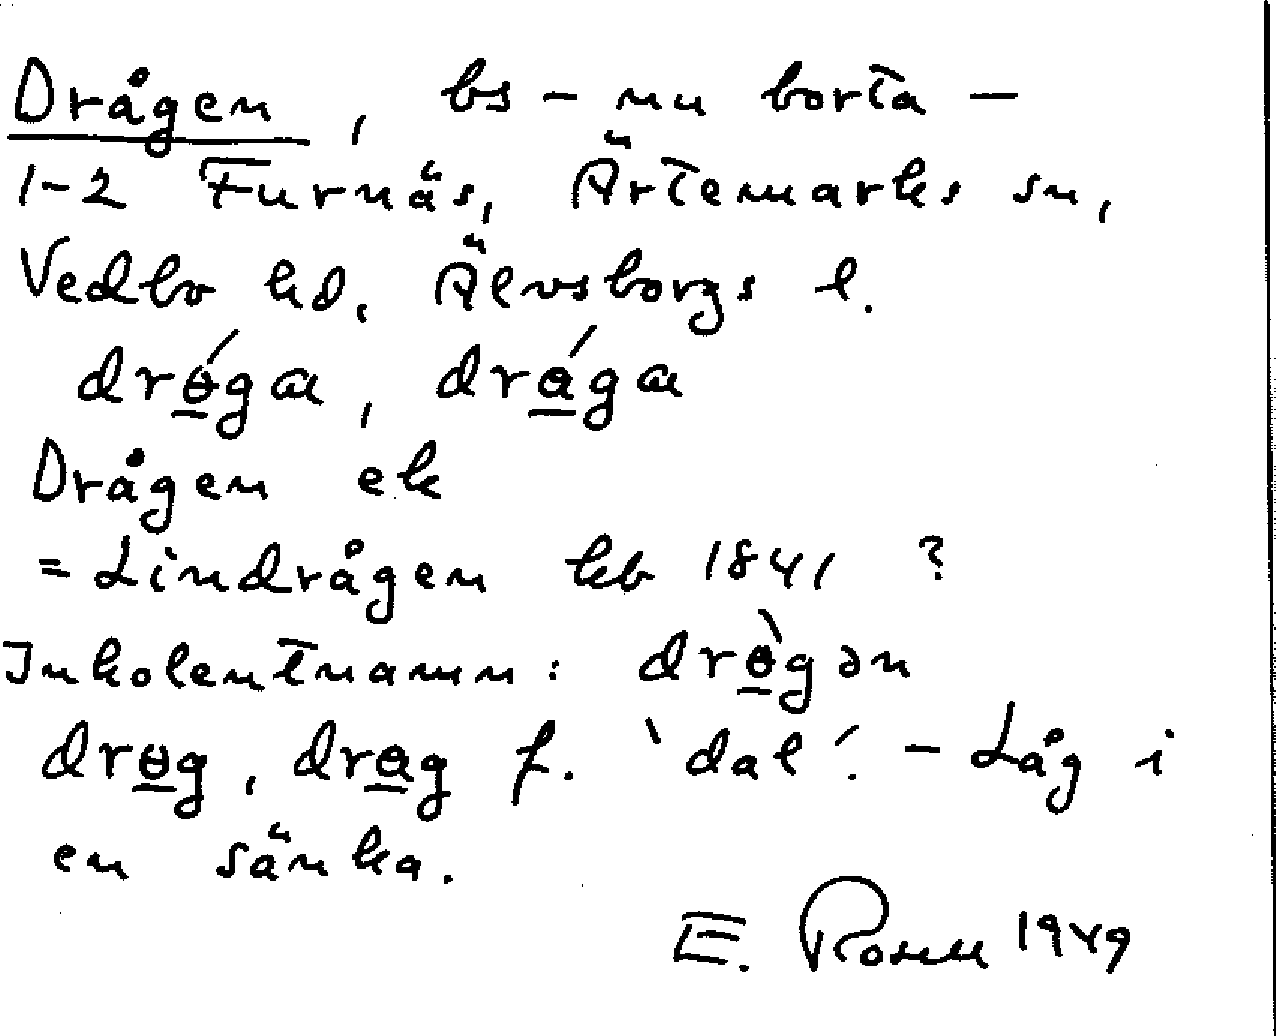 Drågen, bs – nu borta –
1-2 Furnäs, Ärtemarks sn,
Vedbo hd, Älvsborgs l.
drɵ́ga, drága
Drågen ek
= Lindrågen kb 1841 ?
Inkolentnamn: drɵ̀gən
drɵg, drag f. 'dal'. – Låg i
en sänka.
E. Rosell 1949